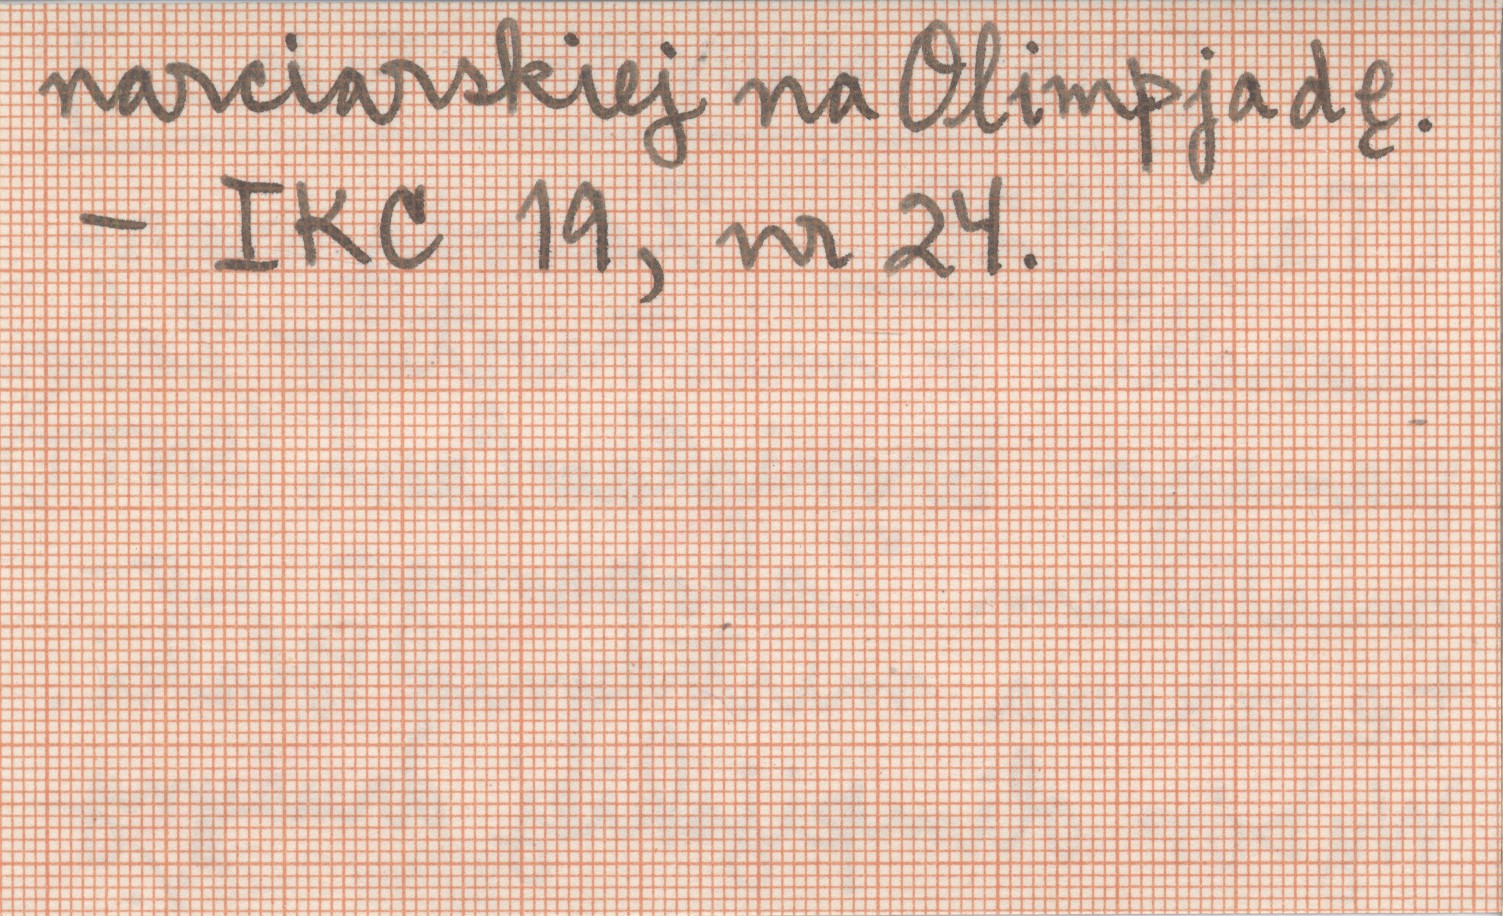 narciarskiej na Olimpjadę.
- IKC 19, nr 24.